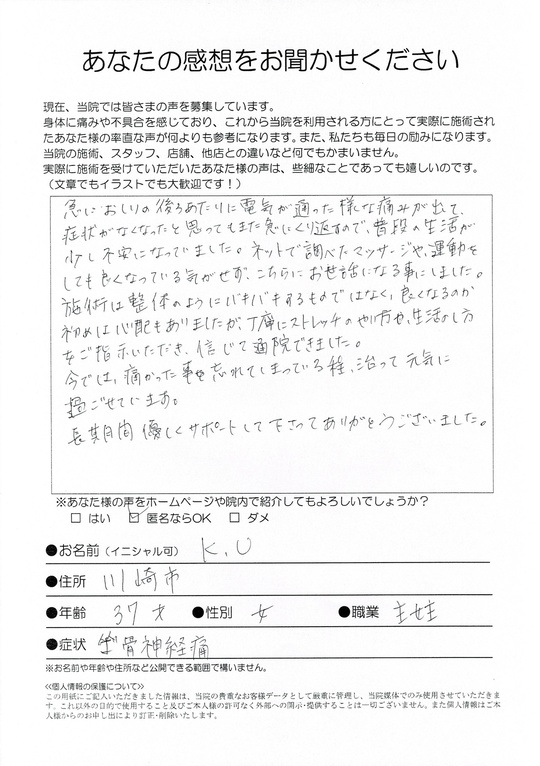 あなたの感想をお聞かせください
現在、当院では皆さまの声を募集しています。
身体に痛みや不具合を感じており、これから当院を利用される方にとって実際に施術され
たあなた様の率直な声が何よりも参考になります。また、私たちも毎日の励みになります。
当院の施術、スタッフ、店舗、他店との違いなど何でもかまいません。
実際に施術を受けていただいたあなた様の声は、些細なことであっても嬉しいのです。
（文章でもイラストでも大歓迎です！）
急におしりの後ろあたりに電気が通った様な痛みが出て、
症状がなくなったと思ってもまた急にくり返すので、普段の生活が
少し不安になっていました。ネットで調べたマッサージや、運動を
しても良くなっている気がせず、こちらにお世話になる事にしました。
施術は整体のようにバキバキするものではなく、良くなるのか
初めは心配もありましたが、丁寧にストレッチのやり方や、生活のし方
をご指示いただき、信じて通院できました。
今では、痛かった事を忘れてしまっている程、治って元気に
過ごせています。
長期間優しくサポートして下さってありがとうございました。
※あなた様の声をホームページや院内で紹介してもよろしいでしょうか？
□ はい ☑ 匿名ならOK □ ダメ
●お名前（イニシャル可） K.U
●住所 川崎市
●年齢 37才 ●性別 女 ●職業 主婦
●症状 坐骨神経痛
※お名前や年齢や住所など公開できる範囲で構いません。
≪個人情報の保護について≫
この用紙にご記入いただきました情報は、当院の貴重なお客様データとして厳重に管理し、当院媒体でのみ使用させていただきま
す。これ以外の目的で使用すること及びご本人様の許可なく外部への開示・提供することは一切ございません。また個人情報はご本
人様からのお申し出により訂正・削除いたします。